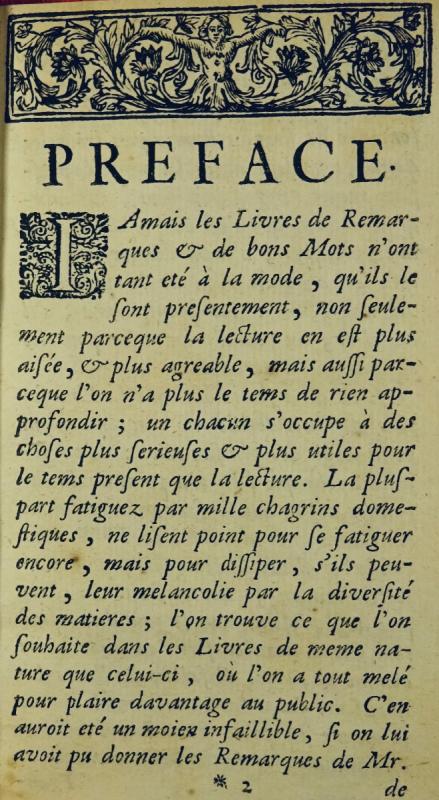 PREFACE.
IAmais les Livres de Remar-
ques & de bons Mots n'ont
tant eté à la mode, qu'ils le
ſont preſentement, non ſeule-
ment parceque la lecture en eſt plus
aiſée, & plus agreable, mais auſſi par-
ceque l'on n'a plus le tems de rien ap-
profondir; un chacun s'occupe à des
choſes plus ſerieuſes & plus utiles pour
le tems preſent que la lecture. La pluſ-
part fatiguez par mille chagrins dome-
ſtiques, ne liſent point pour ſe fatiguer
encore, mais pour diſſiper, s'ils peu-
vent, leur melancolie par la diverſité
des matieres; l'on trouve ce que l'on
ſouhaite dans les Livres de meme na-
ture que celui-ci, où l'on a tout melé
pour plaire davantage au public. C'en
auroit eté un moien infaillible, ſi on lui
avoit pu donner les Remarques de Mr.
* 2 de